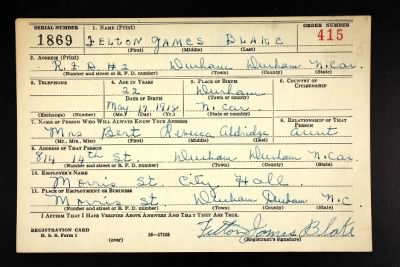 SERIAL NUMBER 1. NAME (Print) ORDER NUMBER
1869 FELTON JAMES BLAKE 415
(First) (Middle) (Last)
2. ADDRESS (Print)
R.F.D #2 Durham Durham N. Car.
(Number and street or R. F. D. number) (Town) (County) (State)
3. TELEPHONE 4. AGE IN YEARS 5. PLACE OF BIRTH 6. COUNTRY OF CITIZENSHIP
22 Durham
DATE OF BIRTH (Town or county)
May 19 1918 N. Car.
(Exchange) (Number) (Mo.) (Day) (Yr.) (State or country)
7. NAME OF PERSON WHO WILL ALWAYS KNOW YOUR ADDRESS 8. RELATIONSHIP OF THAT PERSON
Mrs Bert Rebecca Aldridge aunt
(Mr., Mrs., Miss) (First) (Middle) (Last)
9. ADDRESS OF THAT PERSON
814 14th St. Durham Durham N. Car.
(Number and street or R. F. D. number) (Town) (County) (State)
10. EMPLOYER'S NAME
Morris St. City Hall
11. PLACE OF EMPLOYMENT OR BUSINESS
Morris St. Durham Durham N. C
(Number and street or R. F. D. number) (Town) (County) (State)
I AFFIRM THAT I HAVE VERIFIED ABOVE ANSWERS AND THAT THEY ARE TRUE.
REGISTRATION CARD Felton James Blake
D. S. S. Form 1 16-17105 (Registrant's signature)